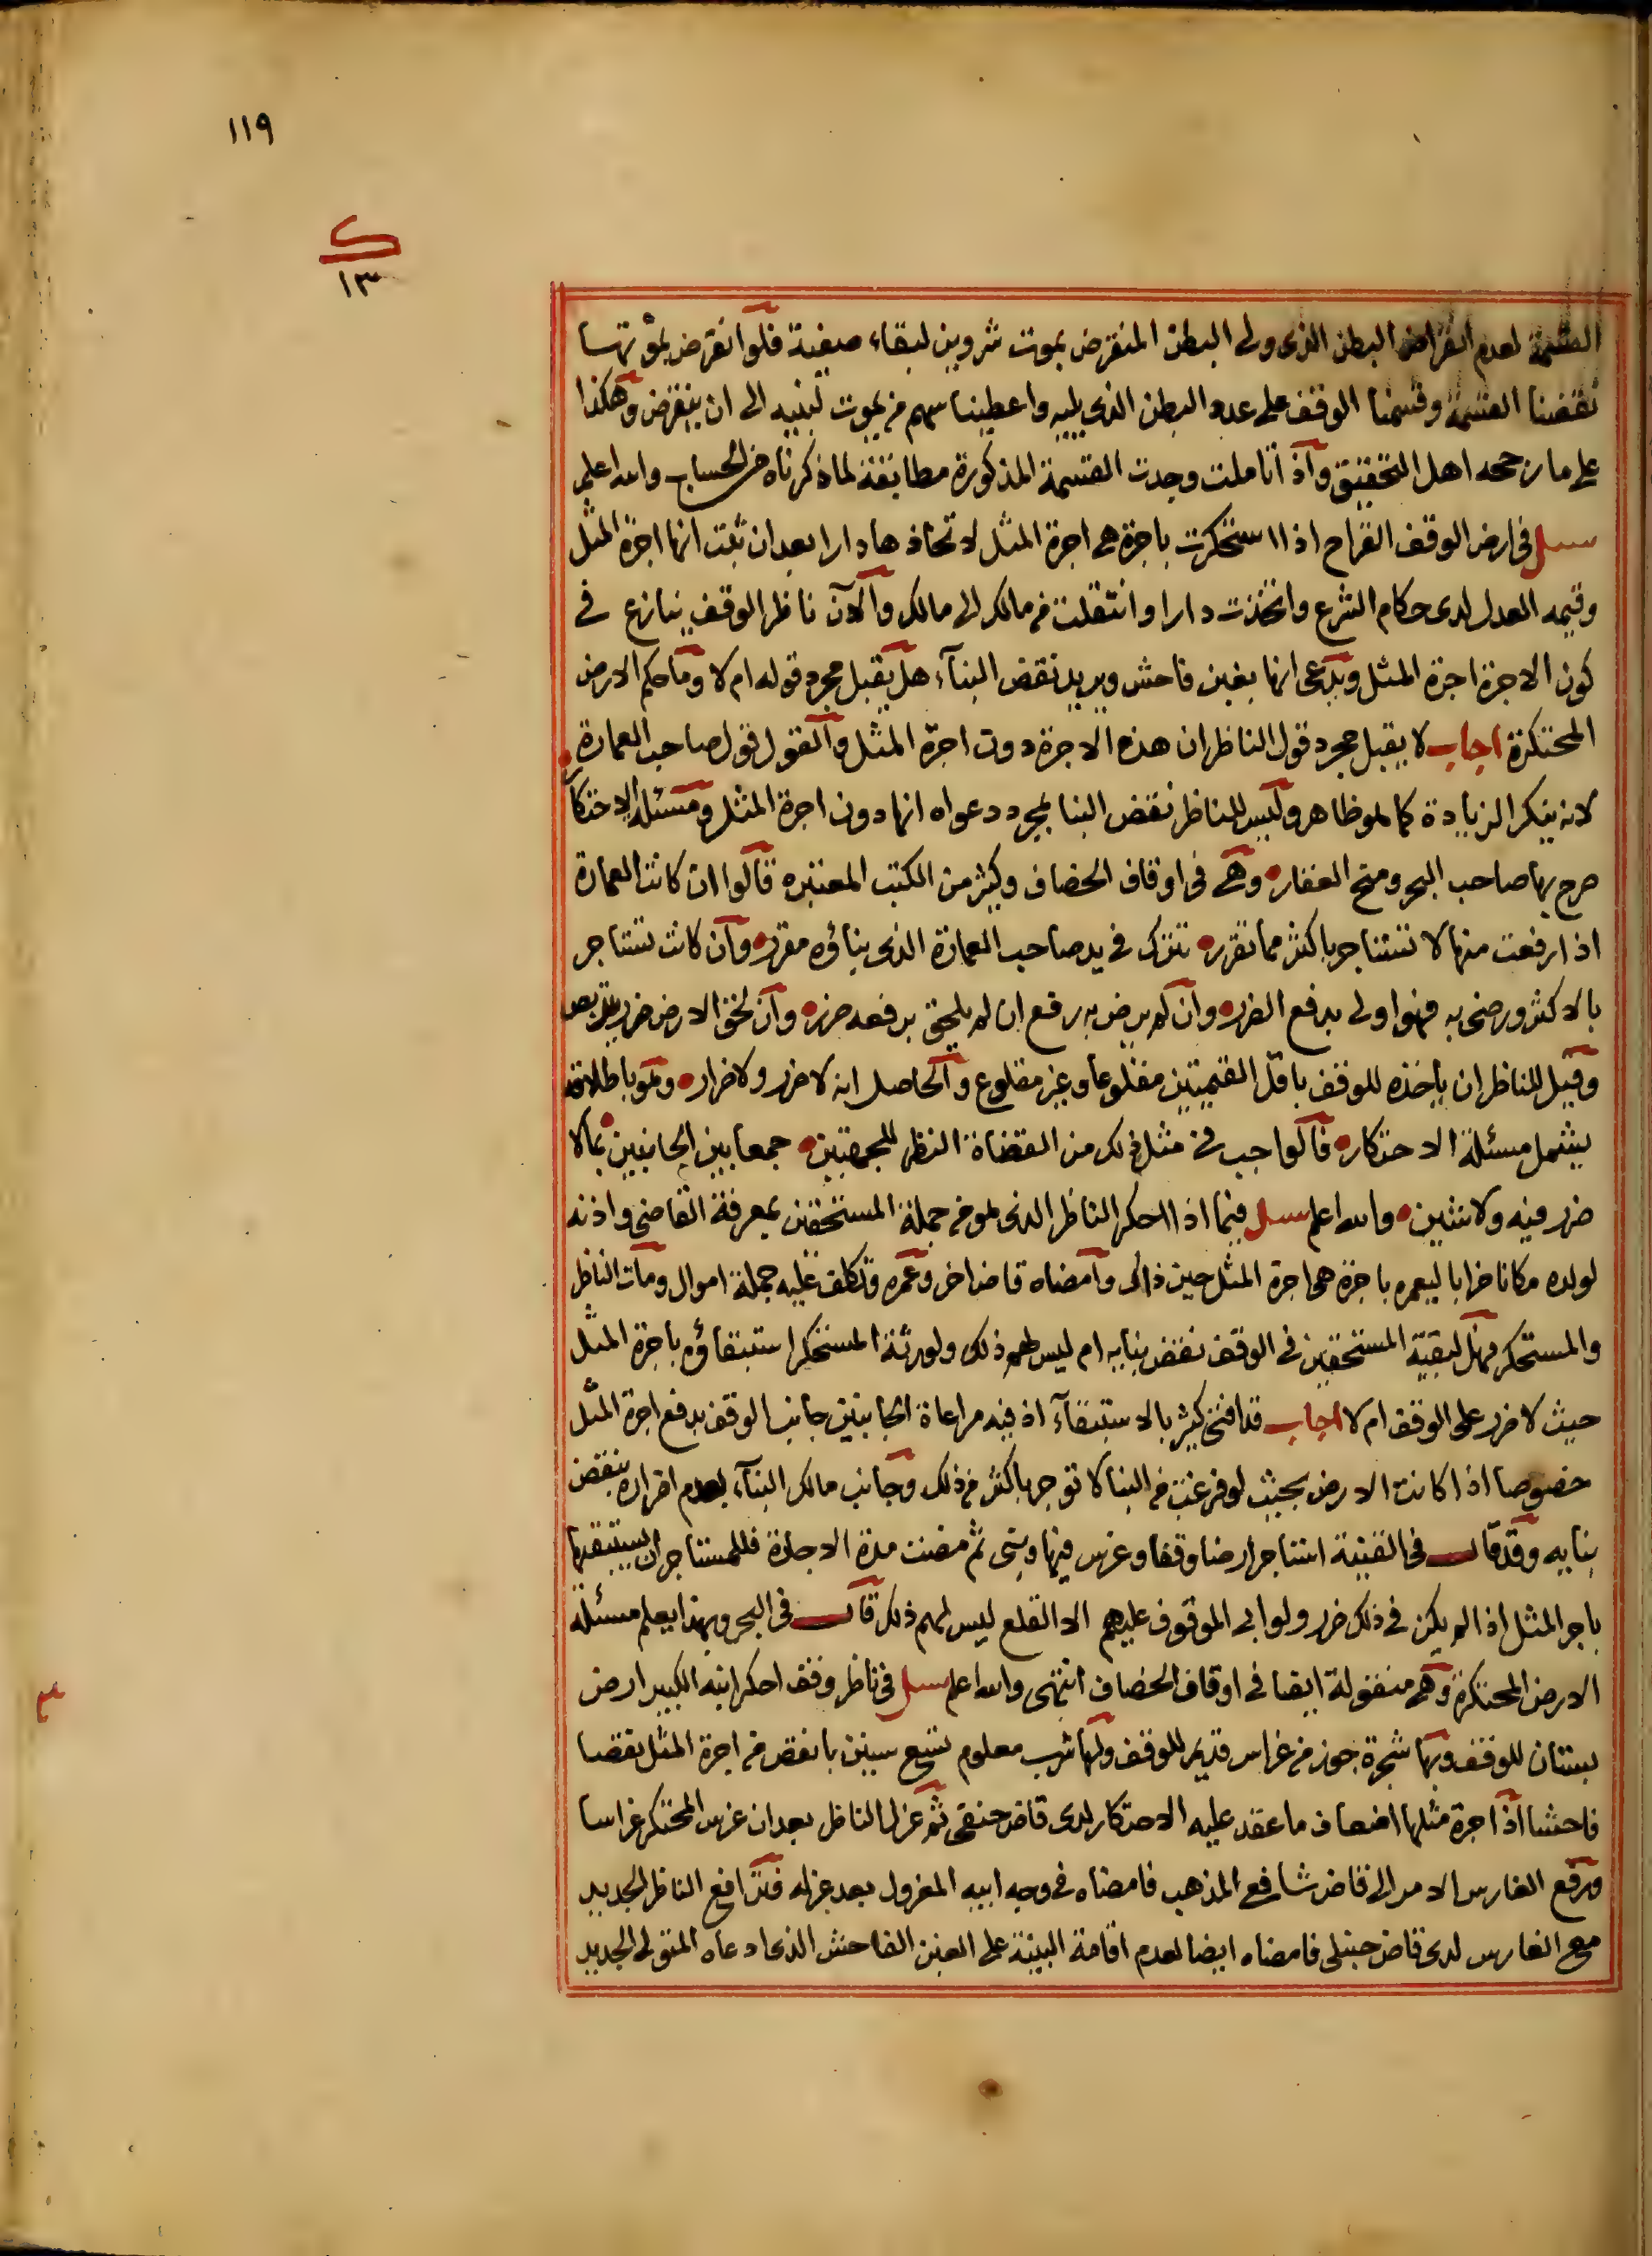 ١١٩
ك
١٣
القسمة لعدم انقراض البطن الذى ولى البطن المنقرض بموت شروين لبقاء صفية فلو انقرض بموتها
نقضنا القسمة وقسمنا الوقف على عدد البطن الذى يليه واعطينا سهم من يموت لبنيه الى ان ينقرض وهكذا
على ما رجحه اهل التحقيق واذا تاملت وجدت القسمة المذكورة مطابقة لما ذكرناه من الحساب والله اعلم
سئل فى ارض الوقف القراح اذا استحكرت باجرة هى اجرة المثل لاتخاذها دارا بعد ان ثبت انها اجرة المثل
وقيمه العدل لدى حكام الشرع واتخذت دارا وانتقلت من مالك الى مالك والآن ناظر الوقف ينازع فى
كون الاجرة اجرة المثل ويدعى انها بغبن فاحش ويريد نقض البنآء هل يقبل مجرد قوله ام لا وما حكم الارض
المحتكرة اجاب لا يقبل مجرد قول الناظر ان هذه الاجرة دون اجرة المثل والقول قول صاحب العمارة
لانه ينكر الزيادة كما هو ظاهر وليس للناظر نقض البنا بمجرد دعواه انها دون اجرة المثل ومسئلة الاحتكار
صرح بها صاحب البحر ومنح الغفار وهى فى اوقاف الخصاف وكثير من الكتب المعتبره قالوا ان كانت العمارة
اذا رفعت منها لا تستاجر باكثر مما تقرر تترك فى يد صاحب العمارة الذى بناؤه مقرر وان كانت تستاجر
بالاكثر ورضى به فهو اولى بدفع الضرر وان لم يرض به رفع ان لم يلحق برفعه ضرر وان لحق الارض ضرر يتربص
وقيل للناظر ان ياخذه للوقف باقل القيمتين مقلوعا وغير مقلوع والحاصل انه لا ضرر ولا ضرار وهو باطلاقه
يشمل مسئلة الاحتكار فالواجب فى مثل ذلك من القضاة النظر للجهتين جمعا بين الجانبين بما لا
ضرر فيه ولا شين والله اعلم سئل فيما اذا احكر الناظر الذى هو من جملة المستحقين بمعرفة القاضى واذنه
لولده مكانا خرابا ليعمره باجرة هى اجرة المثل حين ذاك وامضاه قاض اخر وعمره وتكلف عليه جملة اموال ومات الناظر
والمستحكر فهل لبقية المستحقين فى الوقف نقض بنايه ام ليس لهم ذلك ولورثة المستحكر استبقاؤه باجرة المثل
حيث لا ضرر على الوقف ام لا اجاب قد افتى كثير بالاستبقآء اذ فيه مراعاة الجانبين جانب الوقف بدفع اجرة المثل
خصوصا اذا كانت الارض بحيث لو فرغت من البنا لا توجر باكثر من ذلك وجانب مالك البنآء بعدم اضراره بنقض
بنايه وقد قال فى القنية استاجر ارضا وقفا وغرس فيها وبنى ثم مضت مدة الاجارة فللمستاجر ان يستبقيها
باجر المثل اذا لم يكن فى ذلك ضرر ولو ابى الموقوف عليهم الا القلع ليس لهم ذلك قال فى البحر وبهذا يعلم مسئلة
الارض المحتكرة وهى منقولة ايضا فى اوقاف الخصاف انتهى والله اعلم سئل فى ناظر وقف احكر ابنه الكبير ارض
بستان للوقف وبها شجرة جوز من غراس قديم للوقف ولها شرب معلوم تسع سنين بانقص من اجرة المثل نقصا
فاحشا اذ اجرة مثلها اضعاف ما عقد عليه الاحتكار لدى قاض حنفى ثم عزل الناظر بعد ان غرس المحتكر غراسا
ورفع الغارس الامر الى قاض شافعى المذهب فامضاه فى وجه ابيه المعزول بعد عزله فترافع الناظر الجديد
مع الغارس لدى قاض حنبلى فامضاه ايضا لعدم اقامة البينة على الغبن الفاحش الذى ادعاه المتولى الجديد